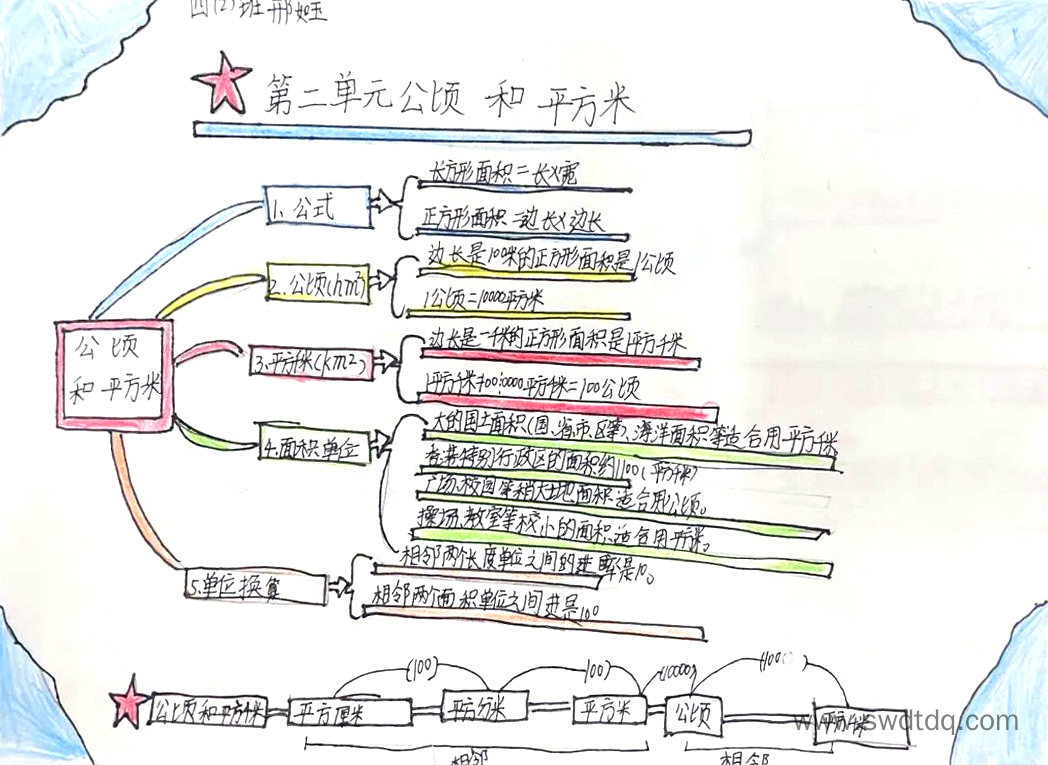 四(2)班邢
第二单元公顷 和 平方米
长方形面积=长×宽
1、公式
正方形面积=边长×边长
边长是100米的正方形面积是1公顷
2.公顷(hm²)
1公顷=10000平方米
公顷
和 平方米
边长是一千米的正方形面积是1平方千米
3.平方千米(km²)
1平方千米=1000000平方米=100公顷
大的国土面积(国、省、市、区等)、海洋面积等适合用平方千米。
4.面积单位
香港特别行政区的面积约1100(平方千米)
广场、校园等稍大土地面积适合用公顷。
操场、教室等较小的面积适合用平方米。
相邻两个长度单位之间的进率是10。
5.单位换算
相邻两个面积单位之间进是100
(100)
(100)
(10000)
公顷和平方千米
平方厘米
平方分米
平方米
公顷
平方千米
相邻
相邻
www.swdtdq.com